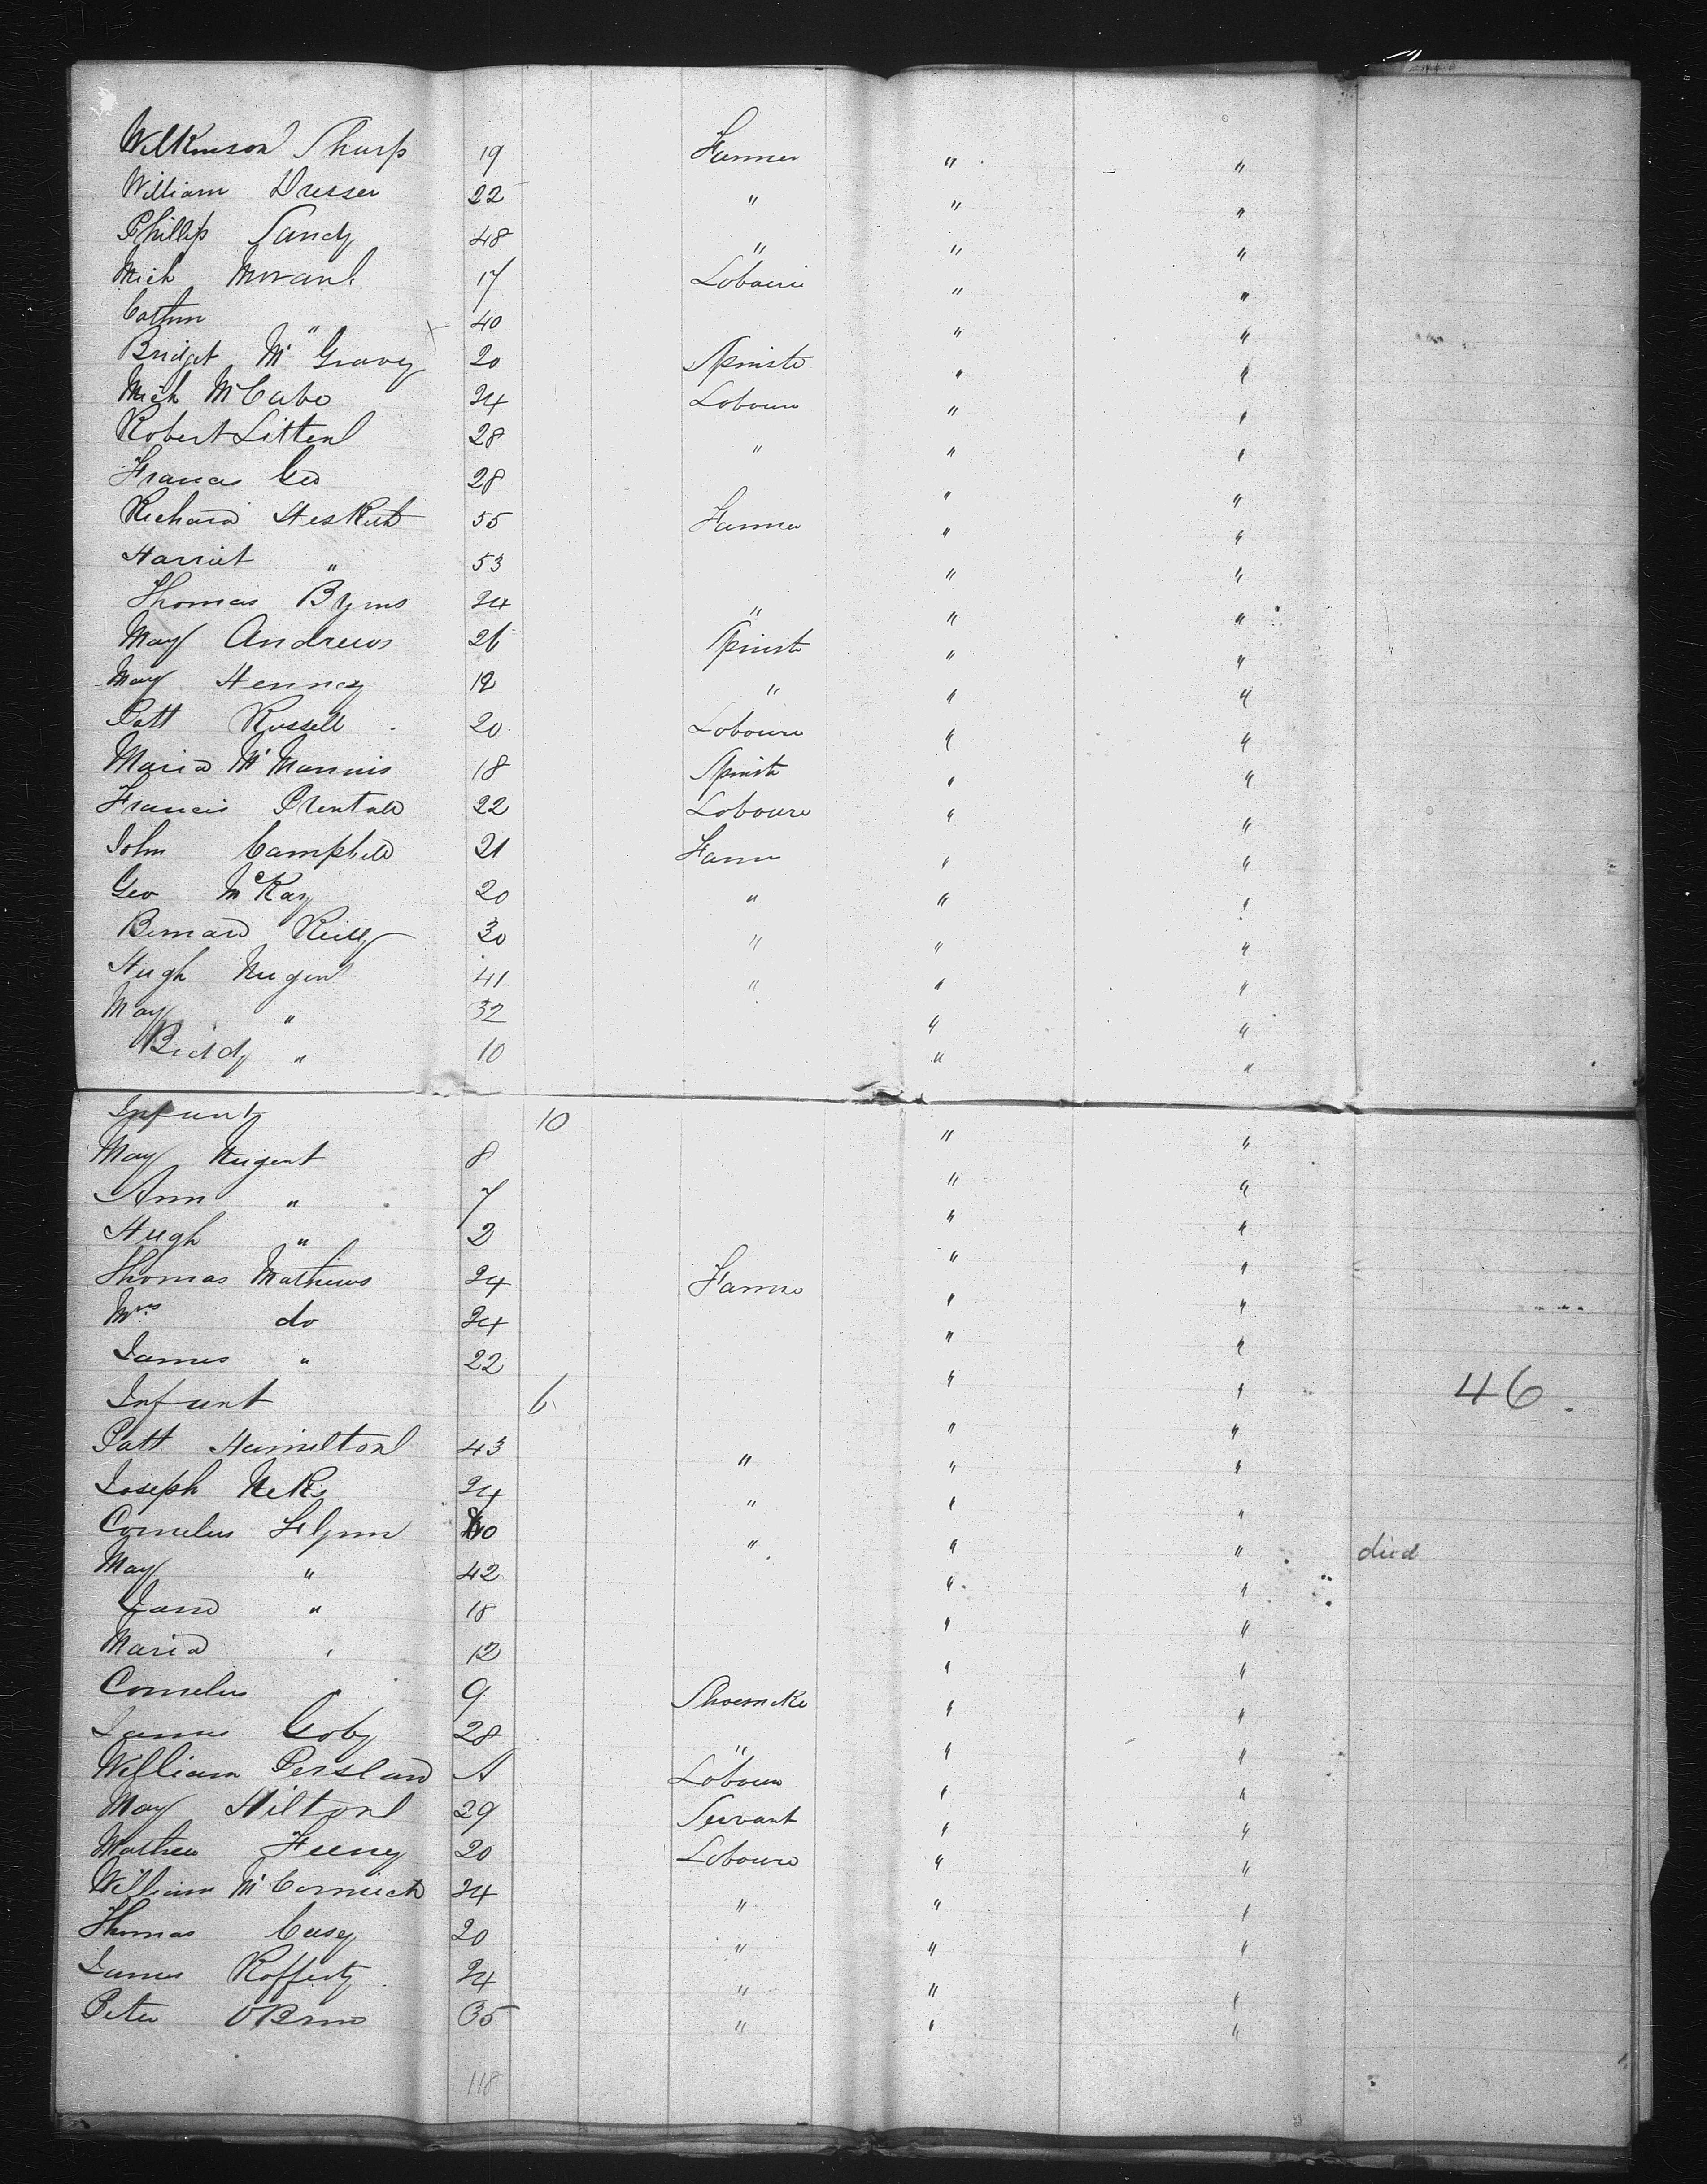 Wilkinson Sharp 19 Farmer " "
William Dresser 22 " " "
Phillip Sandy 48 " " "
Mich Moran 17 Laboure " "
Cathrn " 40 " "
Bridget McGravy 20 Spinste " "
Mich McCabe 24 Laboure " "
Robert Litten 28 " " "
Francis Geo 28 " "
Richard Hesketh 55 Farmer " "
Harriet " 53 " "
Thomas Byrns 24 " " "
May Andrews 26 Spinst " "
May Henney 19 " " "
Patt Russell 20 Laboure " "
Maria McMannis 18 Spinst " "
Francis 22 Laboure " "
John Campbell 21 Farm " "
Geo McKay 20 " " "
Bernard Reilly 30 " " "
Hugh Nugent 41 " " "
May " 32 " "
Biddy " 10 " "
Infant 10 " "
May Nugent 8 " "
Ann " 7 " "
Hugh " 2 " "
Thomas Mathews 24 Farme " "
Mrs do 24 " "
James " 22 " "
Infant 6 " " 46
Patt Hamilton 43 " " "
Joseph 24 " " "
Cornelus Flynn " " " died
May " 42 " "
Jane " 18 " "
Maria " 12 " "
Cornelus " 9 " "
James 28 Shoemake " "
William A " Laboure " "
May Hilton 29 Servant " "
Mathew Feeny 20 Laboure " "
William McCormick 24 " " "
Thomas Casey 20 " " "
James Rafferty 24 " " "
Peter OBrne 35 " " "
118